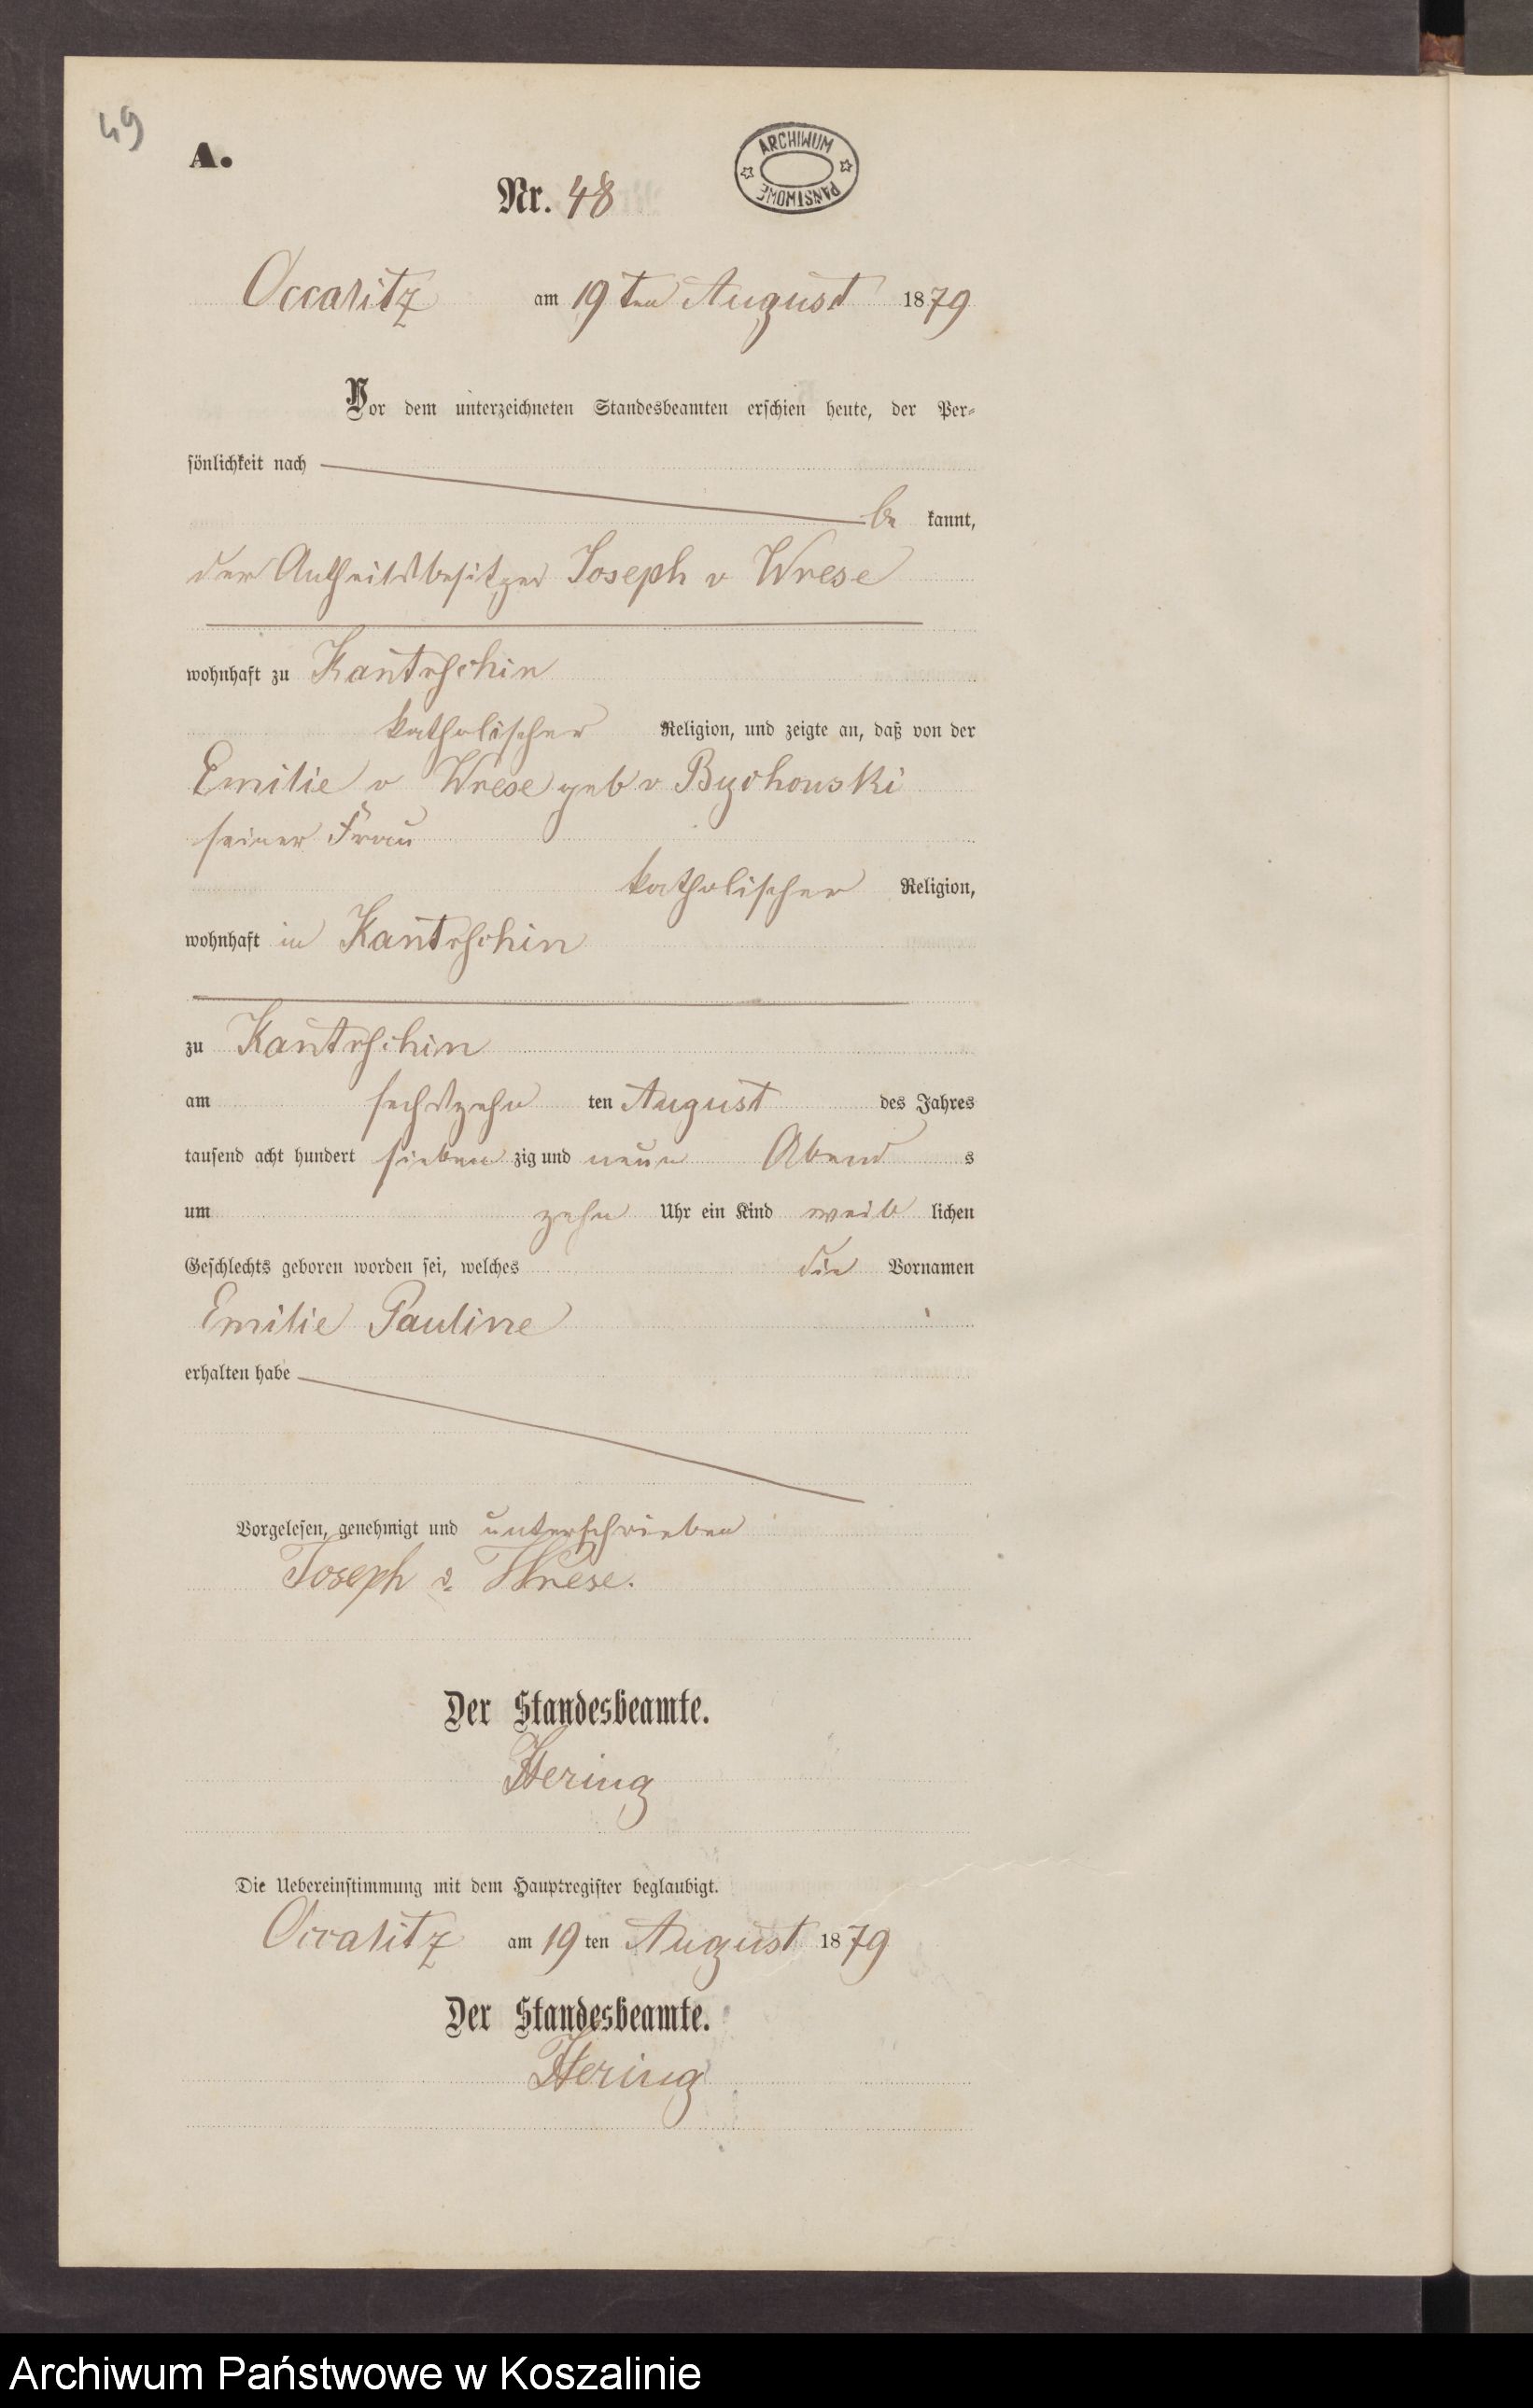 49
A.
ARCHIWUM PAŃSTWOWE
Nr. 48
Occalitz am 19ten August 1879
Vor dem unterzeichneten Standesbeamten erschien heute, der Per-
sönlichkeit nach
be kannt,
der Antheilsbesitzer Joseph v Wrese
wohnhaft zu Kantrschin
katholischer Religion, und zeigte an, daß von der
Emilie v Wrese geb v Bychowski
seiner Frau
katholischer Religion,
wohnhaft in Kantrschin
zu Kantrschin
am sechszehn ten August des Jahres
tausend acht hundert sieben zig und neun Abend s
um zehn Uhr ein Kind weib lichen
Geschlechts geboren worden sei, welches die Vornamen
Emilie Pauline
erhalten habe
Vorgelesen, genehmigt und unterschrieben
Joseph v. Wrese.
Der Standesbeamte.
Hering
Die Uebereinstimmung mit dem Hauptregister beglaubigt.
Occalitz am 19 ten August 1879
Der Standesbeamte.
Hering
Archiwum Państwowe w Koszalinie